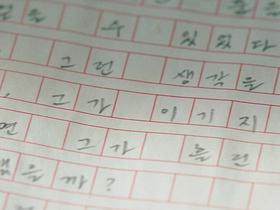 을 수 있었다
그런 생각을
그가 이기지
면 그가 틀린
을까?